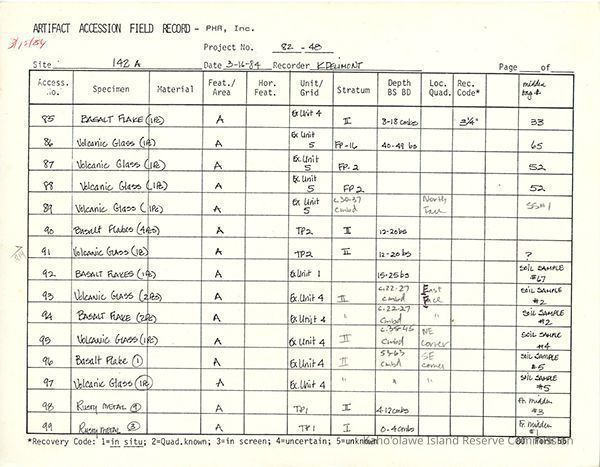 ARTIFACT ACCESSION FIELD RECORD - PHR, Inc.
3/12/84
Project No. 82-48
Site 142 A Date 3-16-84 Recorder K. DELIMONT Page of
Access. No. Specimen Material Feat./ Area Hor. Feat. Unit/ Grid Stratum Depth BS BD Loc. Quad. Rec. Code* midden bag #
85 BASALT FLAKE (1PC) A Ex Unit 4 II 8-18 cmbs 3/4" 33
86 Volcanic Glass (1PC) A Ex Unit 5 FP-16 40-49 bs 65
87 Volcanic Glass (1PC) A Ex Unit 5 FP-2 52
88 Volcanic Glass (1PC) A Ex Unit 5 FP 2 52
89 Volcanic Glass (1PC) A Ex Unit 5 c.30-37 cmbd North Face SS#1
90 Basalt Flakes (4PCS) A TP2 II 12-20bs
91 Volcanic Glass (1PC) A TP2 II 12-20bs ?
92 BASALT FLAKES (1PC) A Ex Unit 1 15-25bs SOIL SAMPLE #67
93 Volcanic Glass (2PCS) A Ex Unit 4 II c.22-27 cmbd East Face SOIL SAMPLE #2
94 BASALT FLAKE (2PCS) A Ex Unit 4 " c.22-27 cmbd SOIL SAMPLE #2
95 Volcanic Glass (1PC) A Ex Unit 4 II c.35-45 cmbd NE corner SOIL SAMPLE #4
96 Basalt Flake (1) A Ex Unit 4 II 53-63 cmbd SE corner SOIL SAMPLE #5
97 Volcanic Glass (1PC) A Ex Unit 4 " " " SOIL SAMPLE #5
98 Rusty METAL (9) A TP1 II 4-12cmbs midden #3
99 Rusty METAL (3) A TP1 I 0-4cmbs midden #1
*Recovery Code: 1=in situ; 2=Quad.known; 3=in screen; 4=uncertain; 5=unknown
Kaho'olawe Island Reserve Commission